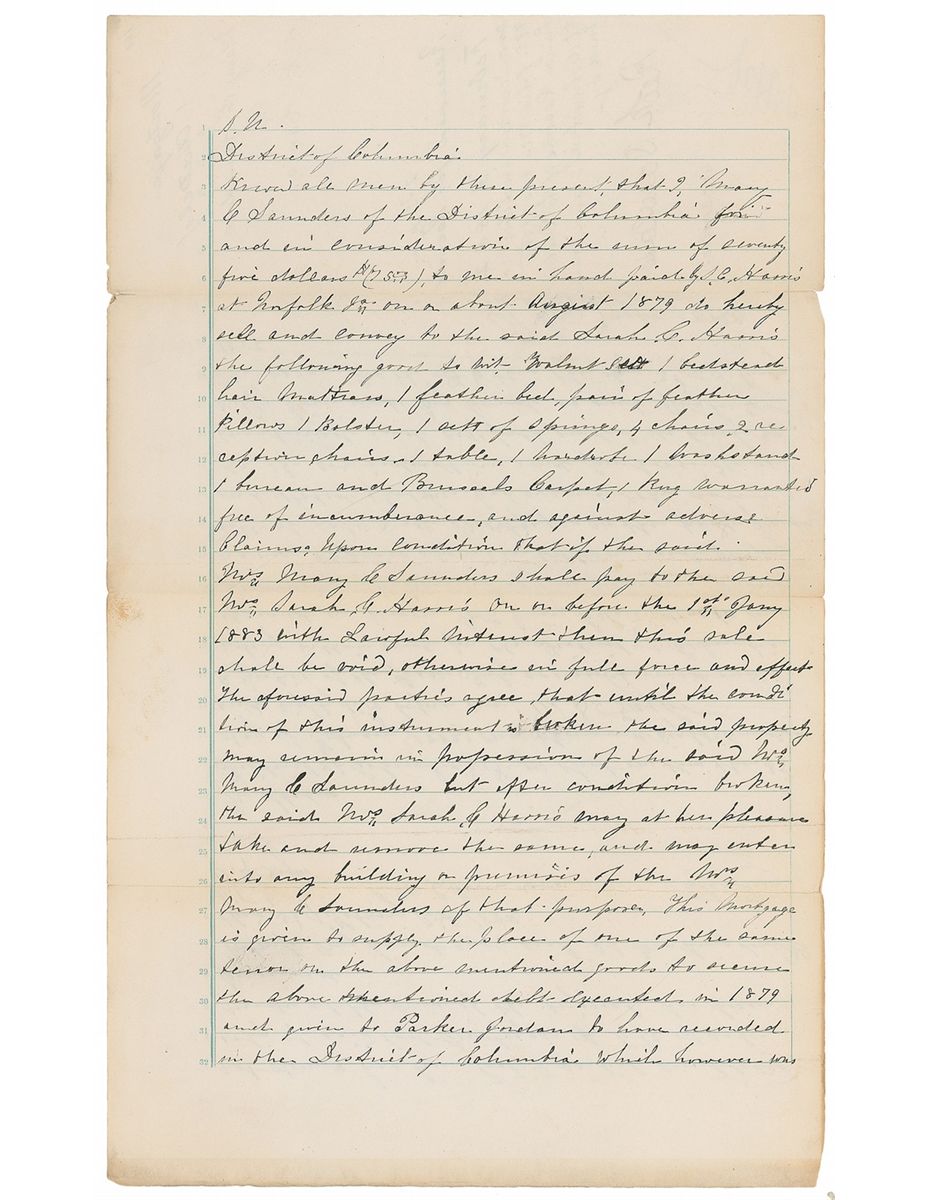 1 S.U.
2 District of Columbia.
3 Know all men by these present, that I, Mary
4 C Saunders of the District of Columbia for
5 and in consideration of the sum of seventy
6 five dollars ($75.), to me in hand paid by S, C, Harris
7 at Norfolk Va on or about August 1879 do hereby
8 sell and convey to the said Sarah C. Harris
9 the following good to wit Walnut Sett 1 bedstead
10 hair Mattrass, 1 feather bed, pair of feather
11 Pillows 1 Bolster, 1 sett of springs, 4 chairs, 2 re
12 ception chairs, 1 table, 1 wardrobe 1 Washstand
13 1 bureau and Brussels Carpet, 1 Rug warranted
14 free of incumberance, and against adverse
15 Claims, Upon Condition that if the said
16 Mrs Mary C Saunders shall pay to the said
17 Mrs Sarah, C. Harris on or before the 1st Jany
18 1883 with Lawful Interest then this sale
19 shall be void, otherwise in full force and effect
20 The aforesaid parties agree, that until the condi
21 tion of this instrument is broken the said property
22 may remain in possession of the said Mrs
23 Mary C Saunders but after condition broken,
24 the said Mrs Sarah, C Harris may at her pleasure
25 take and remove the same, and may enter
26 into any building or premises of the Mrs
27 Mary C Saunders of that purpose, This Mortgage
28 is given to supply the place of one of the same
29 tenor on the above mentioned goods to secure
30 the above mentioned debt executed in 1879
31 and given to Parker Jordan to have recorded
32 in the District of Columbia which however was